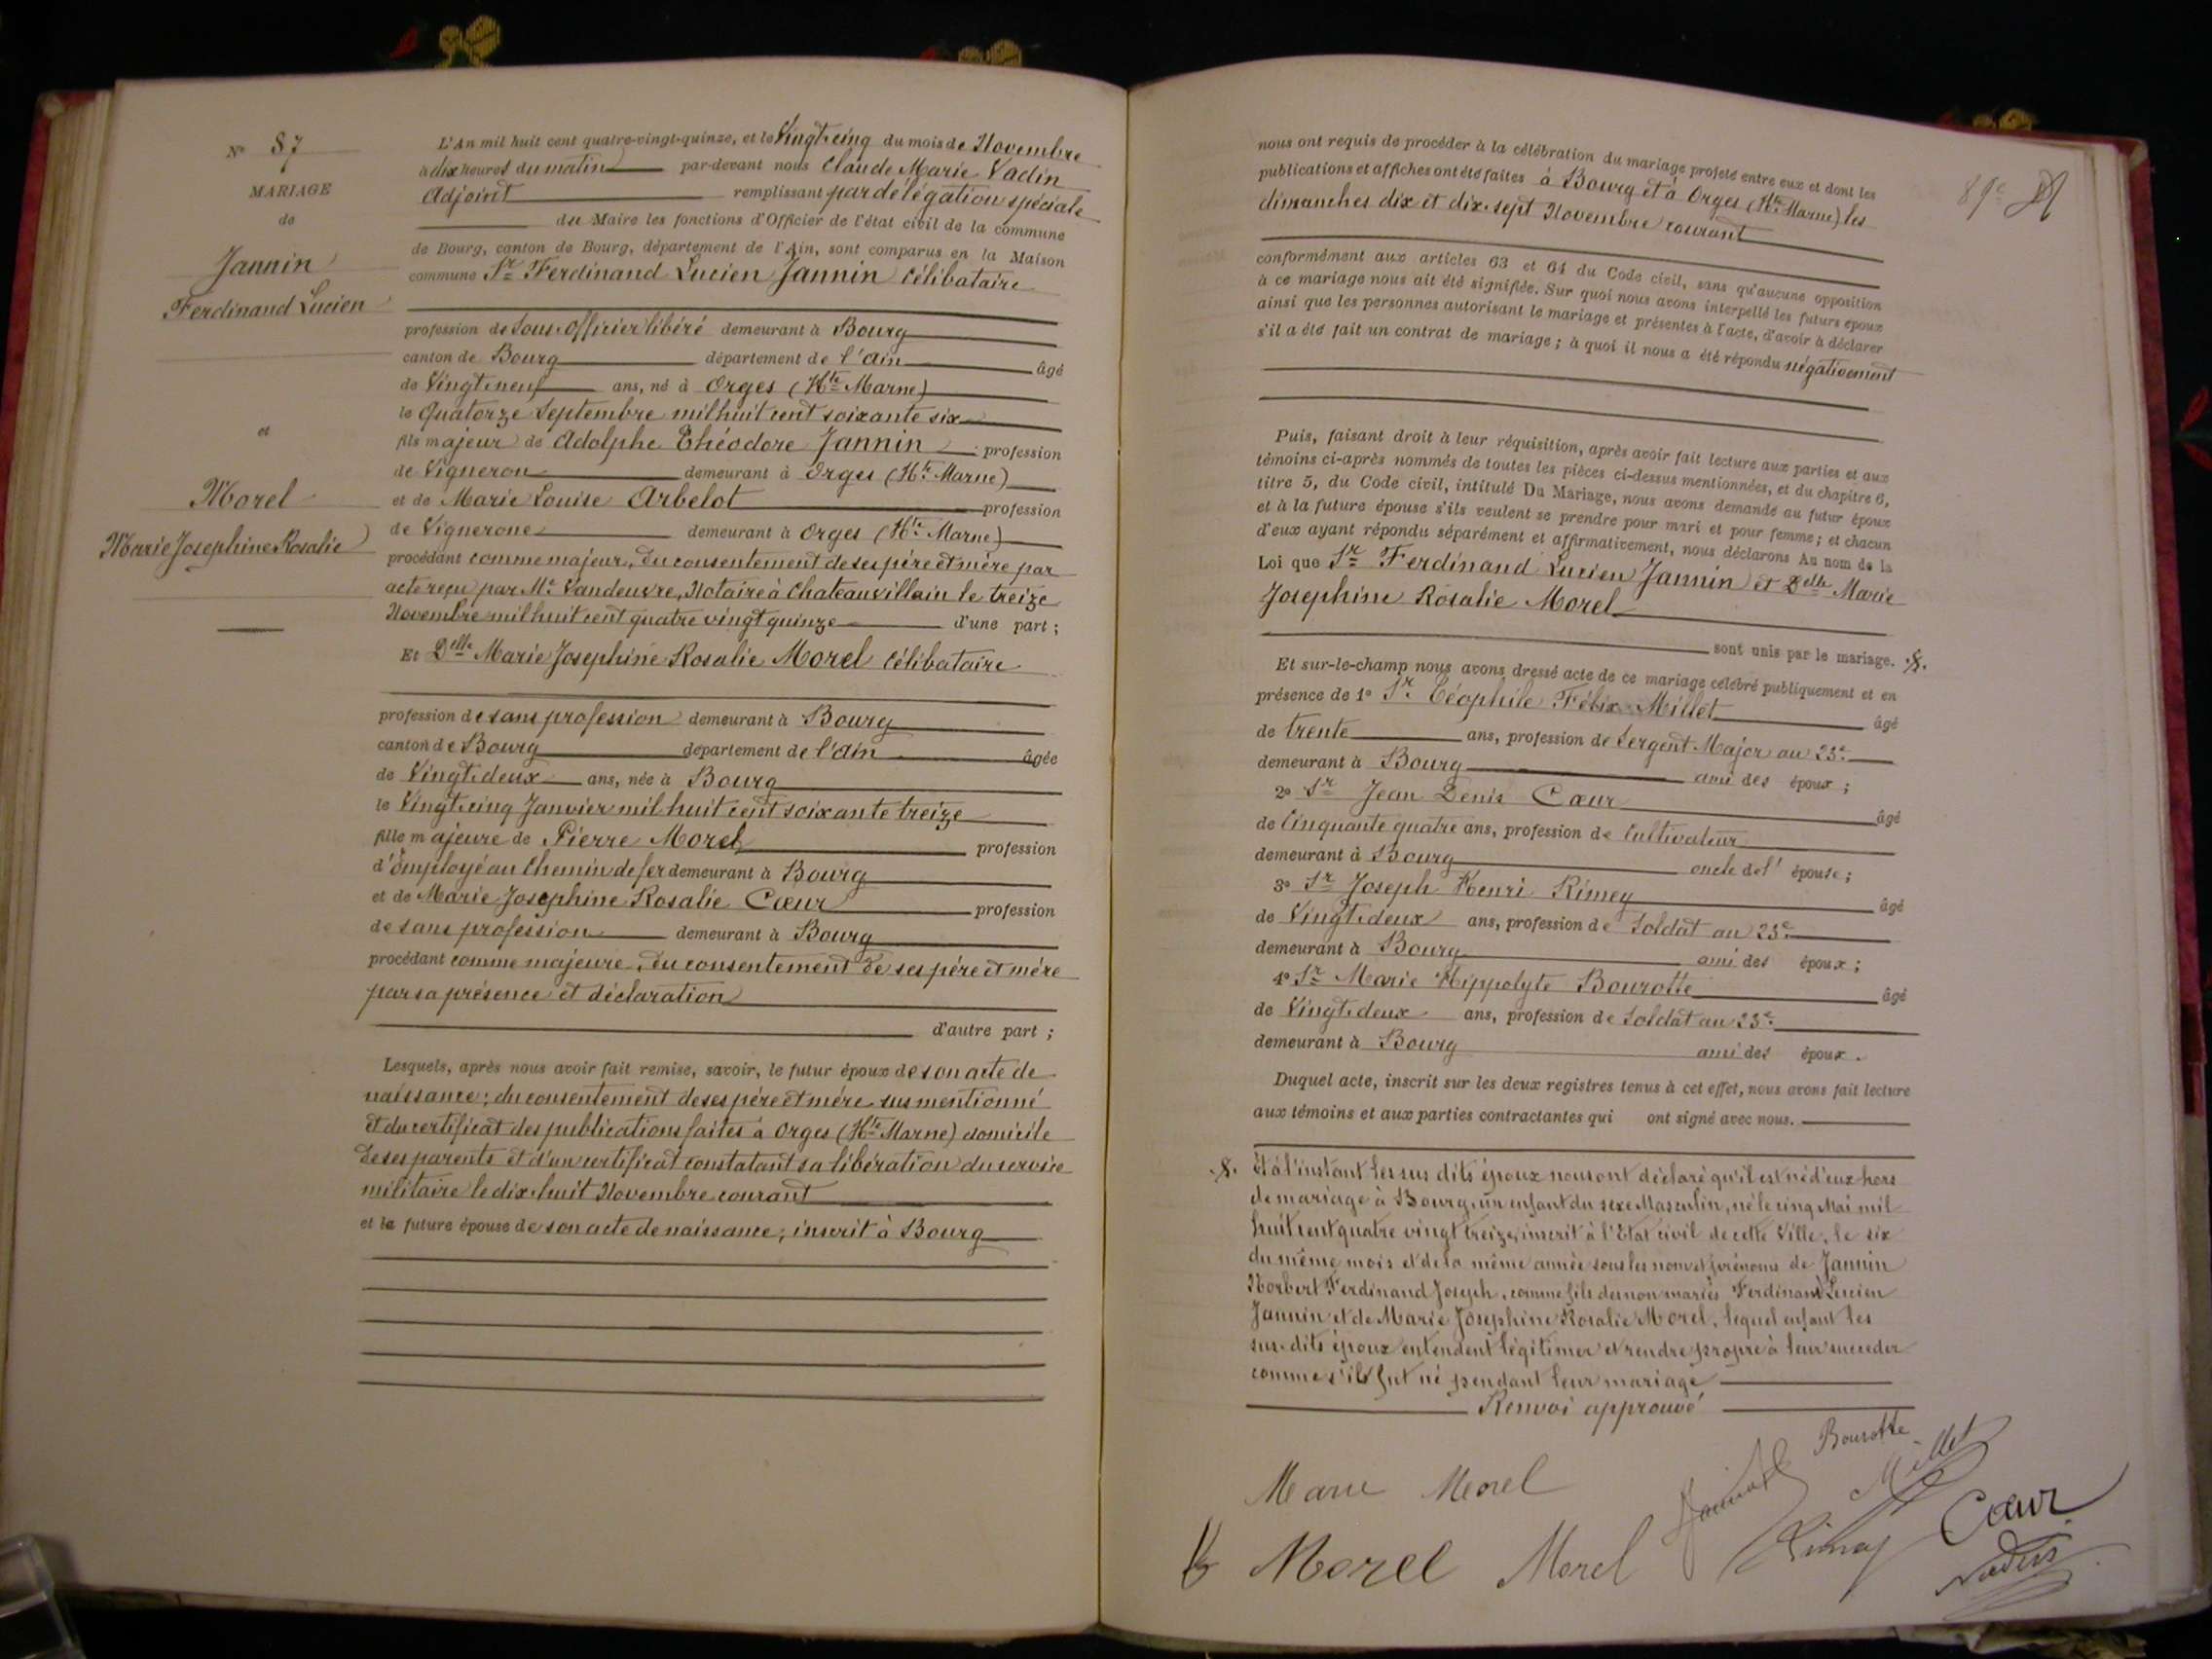 N° 87
MARIAGE
de
Jannin
Ferdinand Lucien
et
Morel
Marie Josephine Rosalie
L'An mil huit cent quatre-vingt-quinze, et le Vingt-cinq du mois de Novembre
à dix heures du matin par-devant nous Claude Marie Vadin
Adjoint remplissant par délégation spéciale
du Maire les fonctions d'Officier de l'état civil de la commune
de Bourg, canton de Bourg, département de l'Ain, sont comparus en la Maison
commune Sr Ferdinand Lucien Jannin célibataire
profession de Sous-officier libéré demeurant à Bourg
canton de Bourg département de l'Ain âgé
de Vingt-neuf ans, né à Orges (Hte Marne)
le Quatorze Septembre mil huit cent soixante six
fils majeur de Adolphe Théodore Jannin profession
de Vigneron demeurant à Orges (Hte Marne)
et de Marie Louise Arbelot profession
de Vignerone demeurant à Orges (Hte Marne)
procédant comme majeur, du consentement de ses père et mère par
acte reçu par Me Vandeuvre, Notaire à Chateauvillain le treize
Novembre mil huit cent quatre vingt quinze d'une part ;
Et Delle Marie Josephine Rosalie Morel célibataire
profession de sans profession demeurant à Bourg
canton de Bourg département de l'Ain âgée
de Vingt-deux ans, née à Bourg
le Vingt-cinq Janvier mil huit cent soixante treize
fille majeure de Pierre Morel profession
d'Employé au Chemin de fer demeurant à Bourg
et de Marie Josephine Rosalie Cœur profession
de sans profession demeurant à Bourg
procédant comme majeure, du consentement de ses père et mère
par sa présence et déclaration
d'autre part ;
Lesquels, après nous avoir fait remise, savoir, le futur époux de son acte de
naissance ; du consentement de ses père et mère sus mentionné
et du certificat des publications faites à Orges (Hte Marne) domicile
de ses parents et d'un certificat constatant sa libération du service
militaire le dix-huit Novembre courant
et la future épouse de son acte de naissance, inscrit à Bourg
89e
nous ont requis de procéder à la célébration du mariage projeté entre eux et dont les
publications et affiches ont été faites à Bourg et à Orges (Hte Marne) les
dimanches dix et dix-sept Novembre courant
conformément aux articles 63 et 64 du Code civil, sans qu'aucune opposition
à ce mariage nous ait été signifiée. Sur quoi nous avons interpellé les futurs époux
ainsi que les personnes autorisant le mariage et présentes à l'acte, d'avoir à déclarer
s'il a été fait un contrat de mariage ; à quoi il nous a été répondu négativement
Puis, faisant droit à leur réquisition, après avoir fait lecture aux parties et aux
témoins ci-après nommés de toutes les pièces ci-dessus mentionnées, et du chapitre 6,
titre 5, du Code civil, intitulé Du Mariage, nous avons demandé au futur époux
et à la future épouse s'ils veulent se prendre pour mari et pour femme ; et chacun
d'eux ayant répondu séparément et affirmativement, nous déclarons Au nom de la
Loi que Sr Ferdinand Lucien Jannin et Delle Marie
Josephine Rosalie Morel
sont unis par le mariage.
Et sur-le-champ nous avons dressé acte de ce mariage célébré publiquement et en
présence de 1° Sr Téophile Félix Millet âgé
de trente ans, profession de Sergent Major au 23e
demeurant à Bourg ami des époux ;
2° Sr Jean Denis Cœur âgé
de Cinquante quatre ans, profession de Cultivateur
demeurant à Bourg oncle de l' épouse ;
3° Sr Joseph Henri Rimey âgé
de Vingt-deux ans, profession de Soldat au 23e
demeurant à Bourg ami des époux ;
4° Sr Marie Hippolyte Bourotte âgé
de Vingt-deux ans, profession de Soldat au 23e
demeurant à Bourg ami des époux.
Duquel acte, inscrit sur les deux registres tenus à cet effet, nous avons fait lecture
aux témoins et aux parties contractantes qui ont signé avec nous.
Et à l'instant les sus dits époux nous ont déclaré qu'il est né d'eux hors
de mariage à Bourg, un enfant du sexe Masculin, né le cinq Mai mil
huit cent quatre vingt treize, inscrit à l'Etat civil de cette Ville, le six
du même mois et de la même année sous les nom et prénoms de Jannin
Norbert Ferdinand Joseph, comme fils des non mariés Ferdinand Lucien
Jannin et de Marie Josephine Rosalie Morel, lequel enfant les
sus-dits époux entendent légitimer et rendre propre à leur succeder
comme s'il fut né pendant leur mariage
Renvoi approuvé
Bourotte
Marie Morel Jannin Millet
Morel Morel Rimey Cœur
Vadin